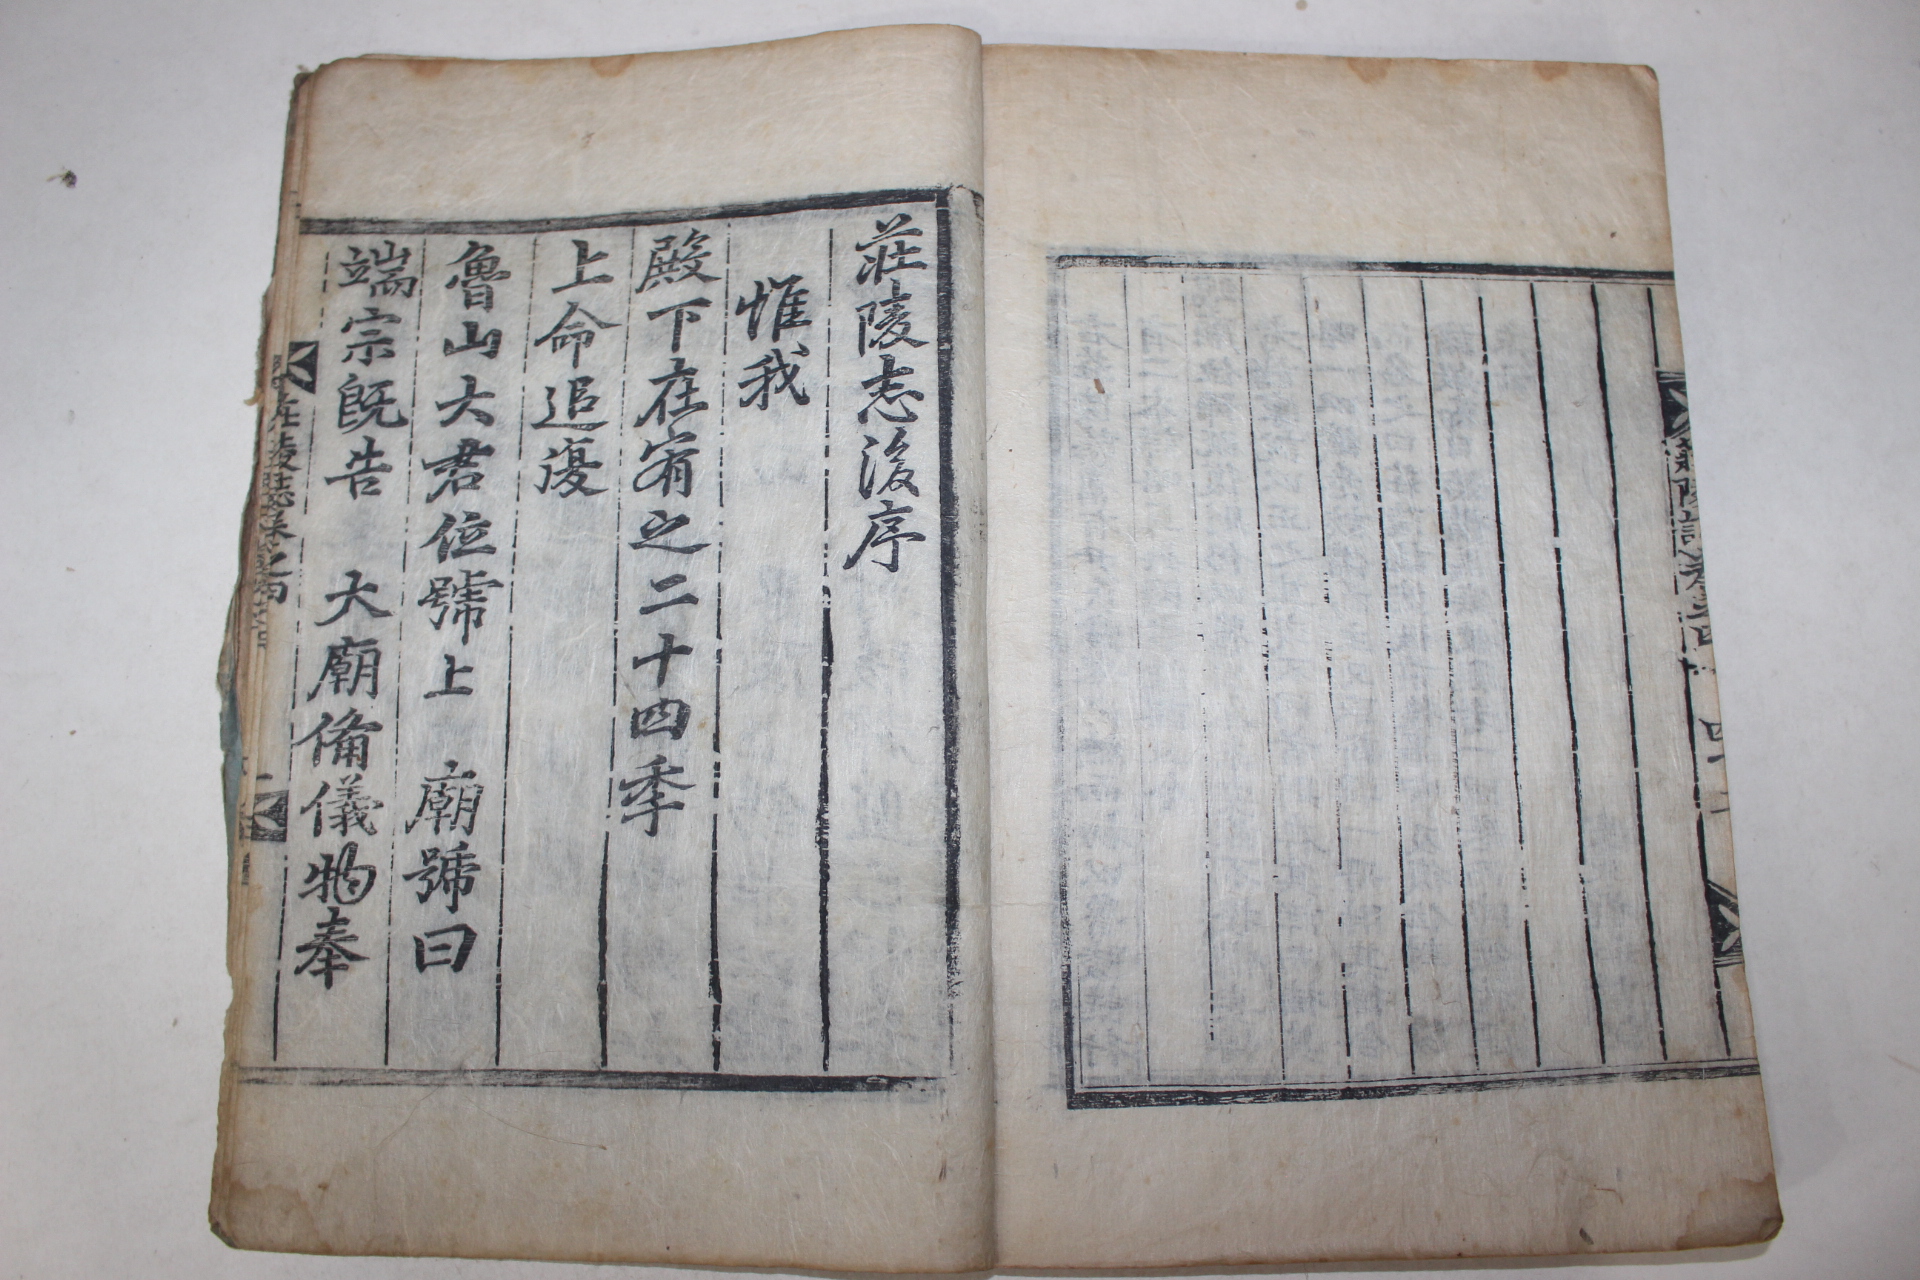 莊陵志後序
惟我
殿下在宥之二十四季
上命追復
魯山大君位號上 廟號曰
端宗旣告 大廟備儀物奉